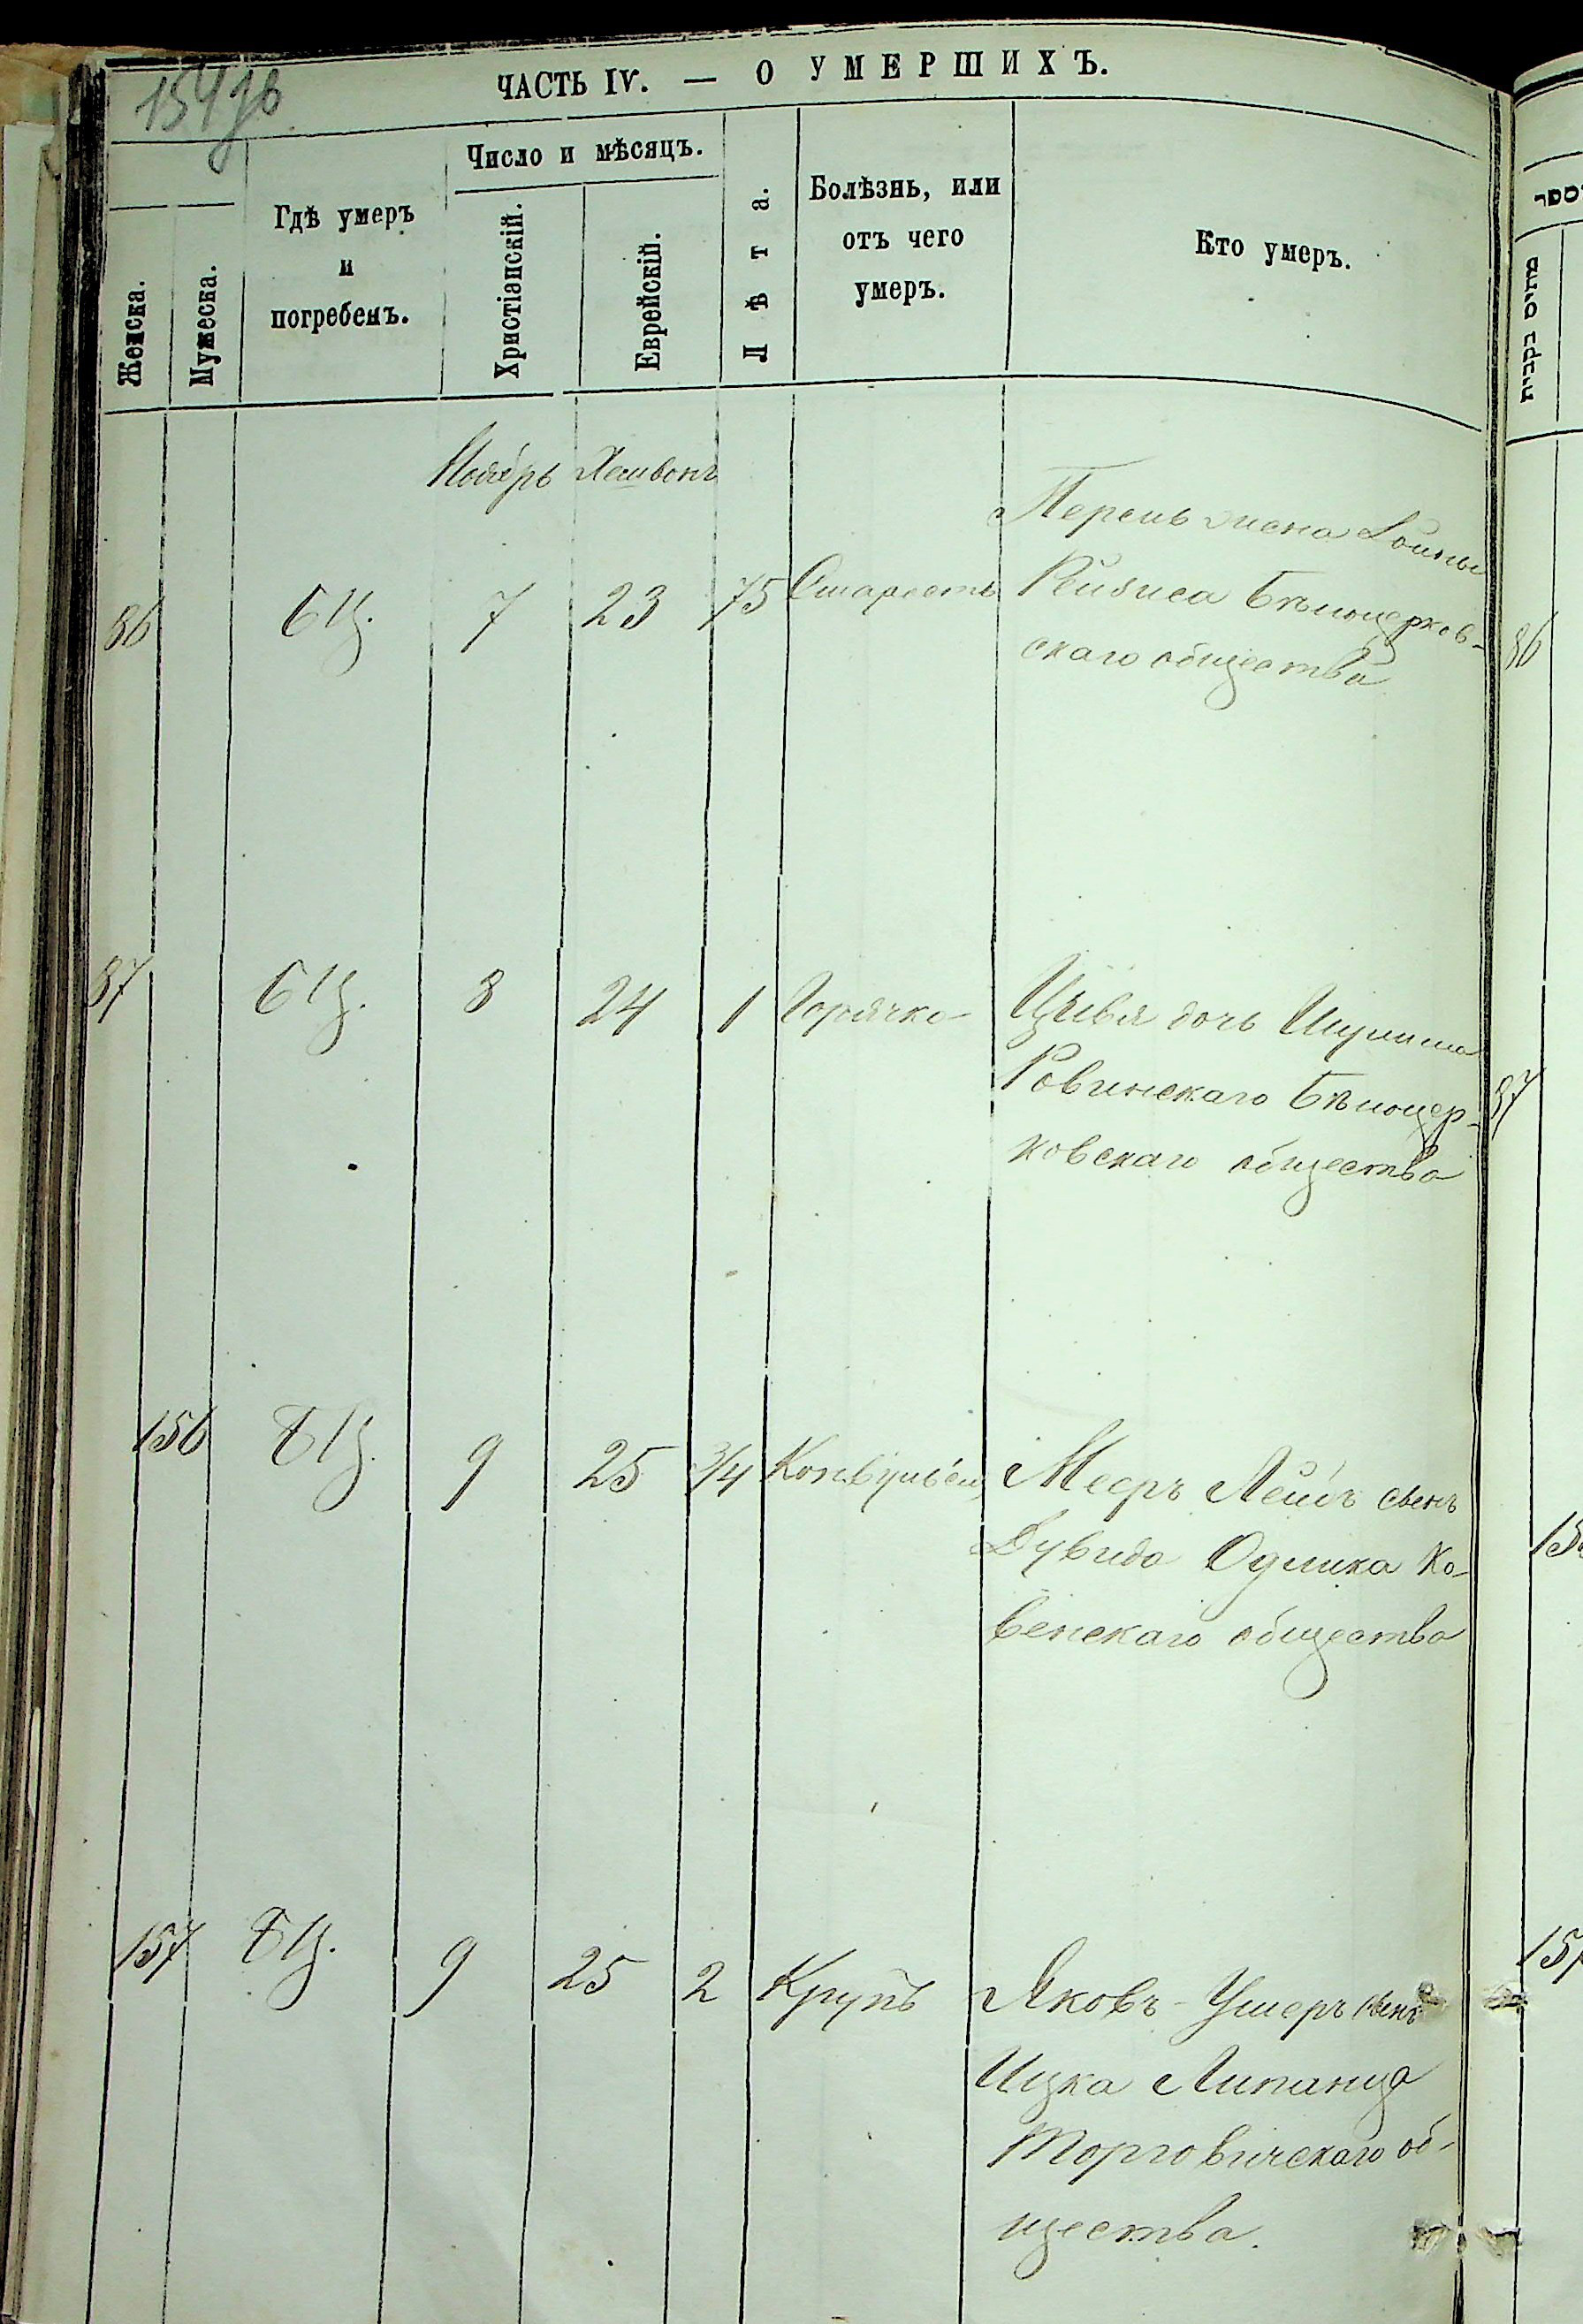 154 зв
ЧАСТЬ IV. — О УМЕРШИХЪ.
Женска.
Мужеска.
Гдѣ умеръ
и
погребенъ.
Число и мѣсяцъ.
Христіанскій.
Еврейскій.
Лѣта.
Болѣзнь, или
отъ чего
умеръ.
Кто умеръ.
Ноябрь Хешвонъ
86 БЦ. 7 23 75 Старость
Перель жена
Бѣлоцерков-
скаго общества
87 БЦ. 8 24 1 Горячка
Цивья дочь
Ровинскаго Бѣлоцер-
ковскаго общества
156 БЦ. 9 25 3/4 Конвульсіи
Мееръ Лейбъ сынъ
Дувида Ко-
венскаго общества
157 БЦ. 9 25 2 Крупъ
Яковъ-Ушеръ сынъ
Ицка Липанца
Торговичскаго об-
щества.
מתים בקבית
86
87
157